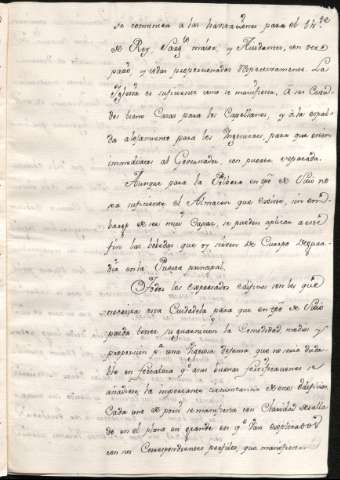 se comunica a las havitaciones para el th.te
de Rey, Sarg.to maior, y Aiudantes, con
y todas proporcionadas respectivamente. La
Yglesia es suficiente como se manifiesta, A sus Costa
dos tiene Casas para los Capellanes, y á la espal
da alojamiento para los Yngenieros, para que esten
immediatos al Governador con puerta separada.
Aunque para la Polvora en tpo de Sitio no
sea suficiente el Almacen que contiene, sin em
bargo de ser mui Capaz, se pueden aplicar a este
fin las bobedas que oy sirven de Cuerpo de guar
dia en la Puerta principal.
Todos los expresados edificios son los que
necesita esta Ciudadela para que en tpo de Sitio
pueda tener su guarnicion la Comodidad, medios y
proporcion p.a una vigorosa defensa, que no seria duda
ble en fortaleza q.e a sus buenas fortificaciones se
añadiere la importante circunstancia de esos edificios.
Cada uno de por si se manifiesta con Claridad detalla
do en el plano en grande en q.e van explicados
con sus Correspondientes perfiles, que manifiestan